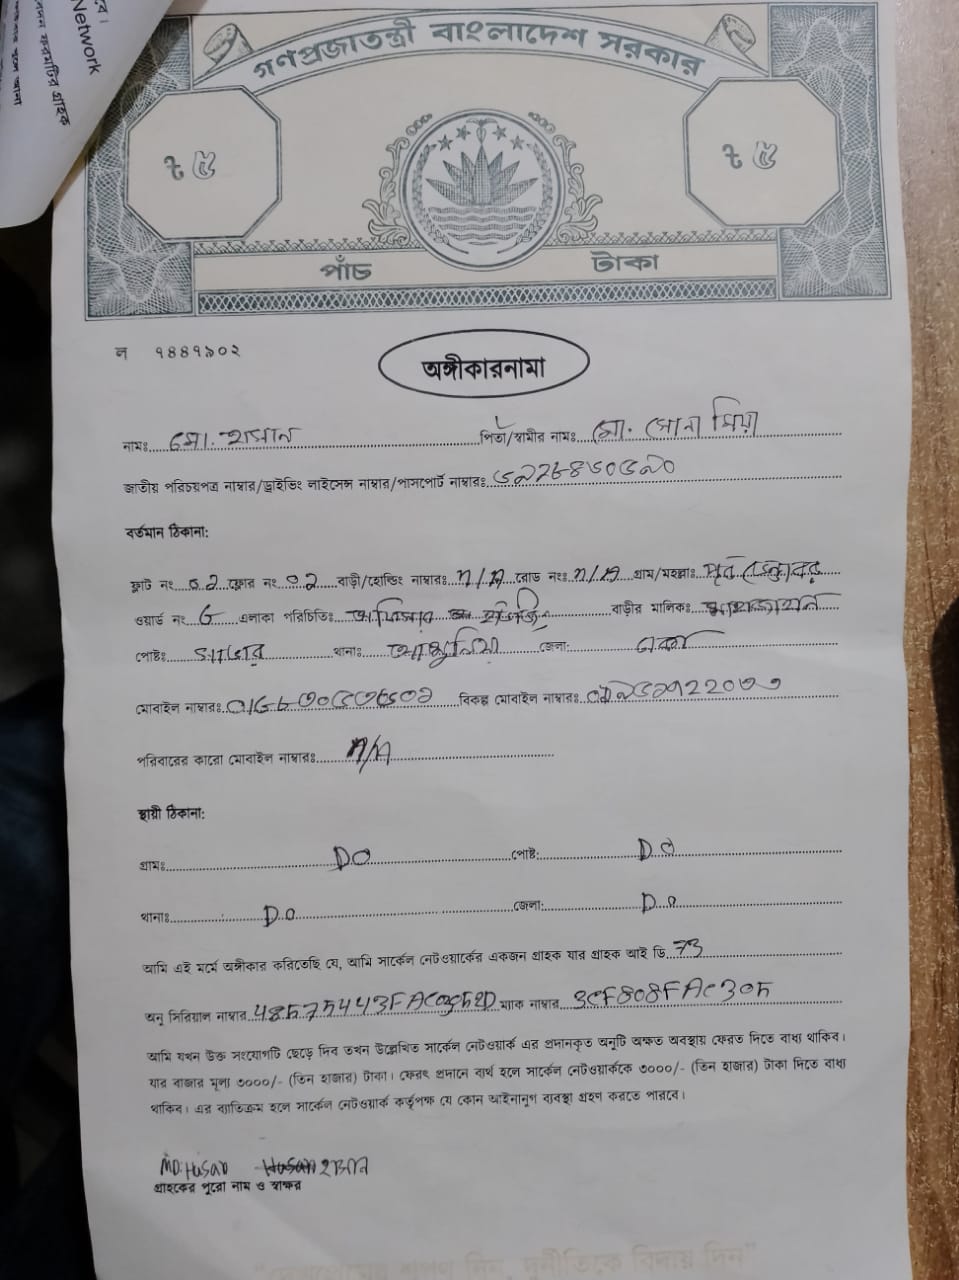 Network
গণপ্রজাতন্ত্রী বাংলাদেশ সরকার
৳ ৫ ৳ ৫
পাঁচ টাকা
ল ৭৪৪৭৯০২
অঙ্গীকারনামা
নামঃ মো. হাসান পিতা/স্বামীর নামঃ মো. সোনা মিয়া
জাতীয় পরিচয়পত্র নাম্বার/ড্রাইভিং লাইসেন্স নাম্বার/পাসপোর্ট নাম্বারঃ
বর্তমান ঠিকানা:
ফ্লাট নং ০২ ফ্লোর নং ০২ বাড়ী/হোল্ডিং নাম্বারঃ N/A রোড নংঃ N/A গ্রাম/মহল্লাঃ পূর্ব
ওয়ার্ড নং এলাকা পরিচিতিঃ বাড়ীর মালিকঃ
পোষ্টঃ সাভার থানাঃ আশুলিয়া জেলা: ঢাকা
মোবাইল নাম্বারঃ বিকল্প মোবাইল নাম্বারঃ
পরিবারের কারো মোবাইল নাম্বারঃ N/A
স্থায়ী ঠিকানা:
গ্রামঃ DO পোষ্ট: DO
থানাঃ DO জেলা: DO
আমি এই মর্মে অঙ্গীকার করিতেছি যে, আমি সার্কেল নেটওয়ার্কের একজন গ্রাহক যার গ্রাহক আই ডি 73
অনু সিরিয়াল নাম্বার ম্যাক নাম্বার
আমি যখন উক্ত সংযোগটি ছেড়ে দিব তখন উল্লেখিত সার্কেল নেটওয়ার্ক এর প্রদানকৃত অনুটি অক্ষত অবস্থায় ফেরত দিতে বাধ্য থাকিব।
যার বাজার মূল্য ৩০০০/- (তিন হাজার) টাকা। ফেরৎ প্রদানে ব্যর্থ হলে সার্কেল নেটওয়ার্ককে ৩০০০/- (তিন হাজার) টাকা দিতে বাধ্য
থাকিব। এর ব্যাতিক্রম হলে সার্কেল নেটওয়ার্ক কর্তৃপক্ষ যে কোন আইনানুগ ব্যবস্থা গ্রহণ করতে পারবে।
MD: Hasan হাসান
গ্রাহকের পুরো নাম ও স্বাক্ষর